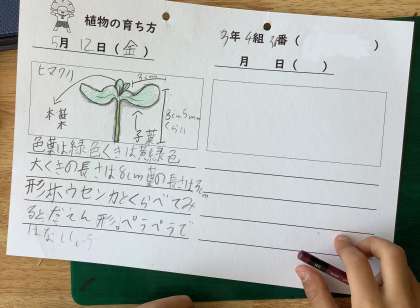 植物の育ち方
5月 12日(金)
ヒマワリ
3cm
3cm5mm
くらい
子葉
色葉は緑色くきは黄緑色
大くきの長さは8cm葉の長さは3cm
形ホウセンカとくらべてみ
るとだてん形。ペラペラで
はない。
3年 4組 番( )
月 日( )